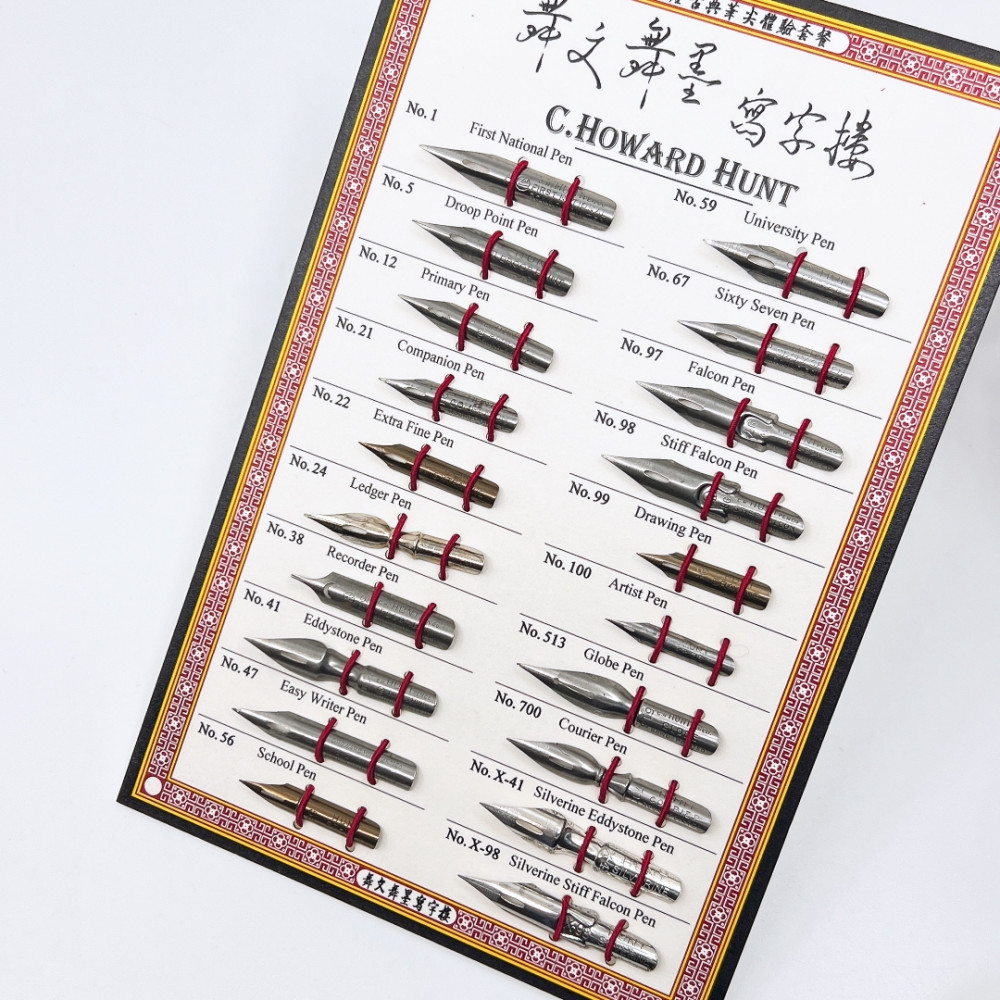 古典筆尖體驗套餐
舞文舞墨 寫字樓
C.HOWARD HUNT
No. 1 First National Pen
No. 5 Droop Point Pen
No. 12 Primary Pen
No. 21 Companion Pen
No. 22 Extra Fine Pen
No. 24 Ledger Pen
No. 38 Recorder Pen
No. 41 Eddystone Pen
No. 47 Easy Writer Pen
No. 56 School Pen
No. 59 University Pen
No. 67 Sixty Seven Pen
No. 97 Falcon Pen
No. 98 Stiff Falcon Pen
No. 99 Drawing Pen
No. 100 Artist Pen
No. 513 Globe Pen
No. 700 Courier Pen
No. X-41 Silverine Eddystone Pen
No. X-98 Silverine Stiff Falcon Pen
舞文舞墨寫字樓